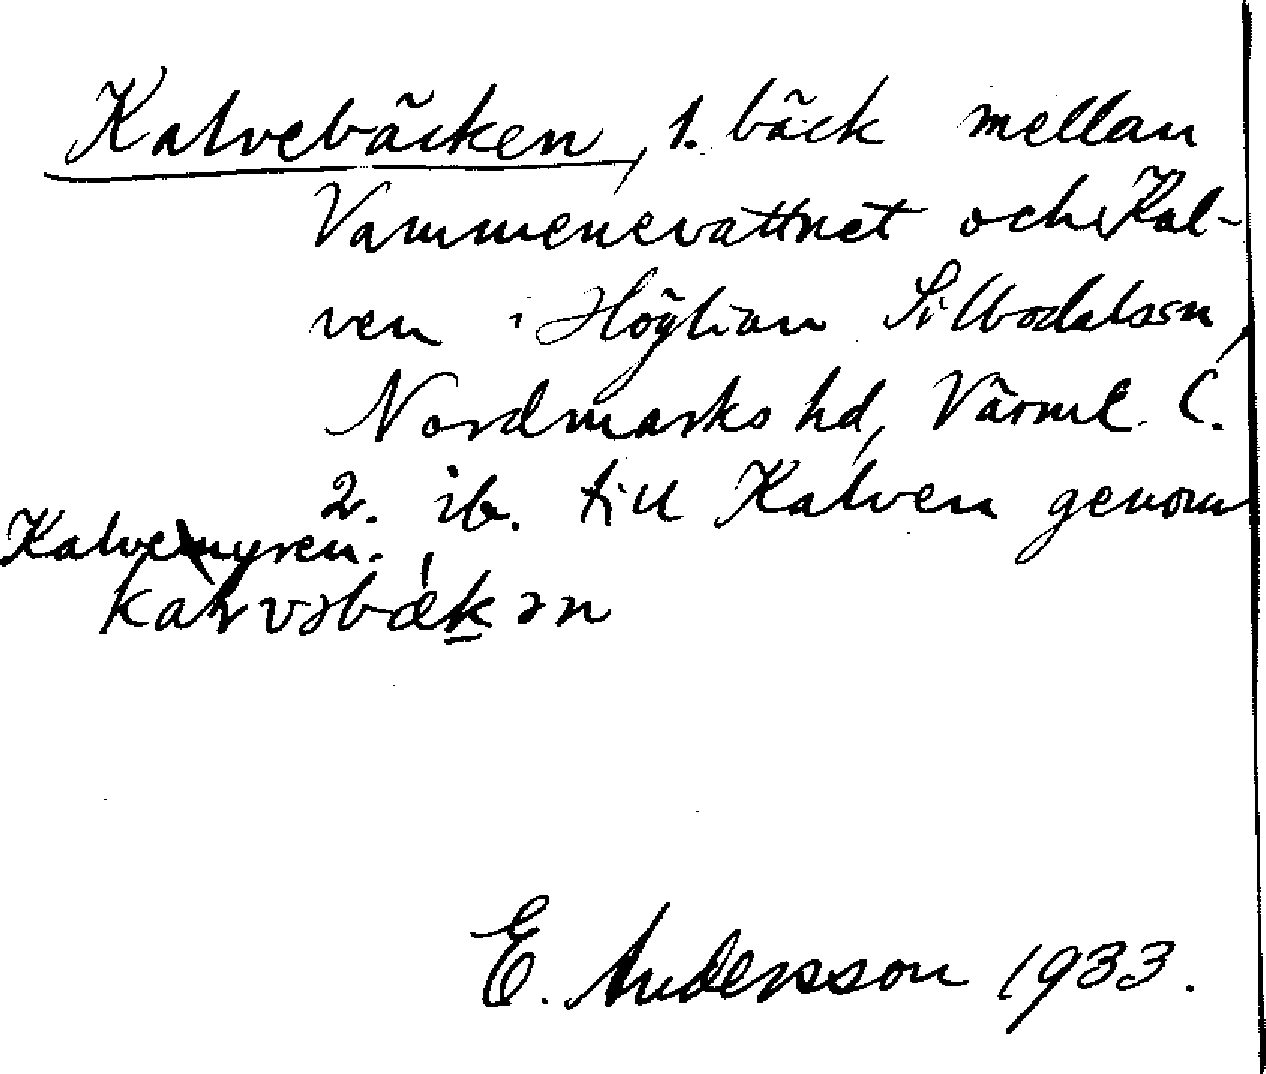 Kalvebäcken, 1. bäck mellan
Vammenevattnet och Kal-
ven i Höglian Silbodalssn,
Nordmarks hd, Värml. l.
2. ib. till Kalven genom
Kalvemyren.
kalvəbæ'kən
E. Andersson 1933.